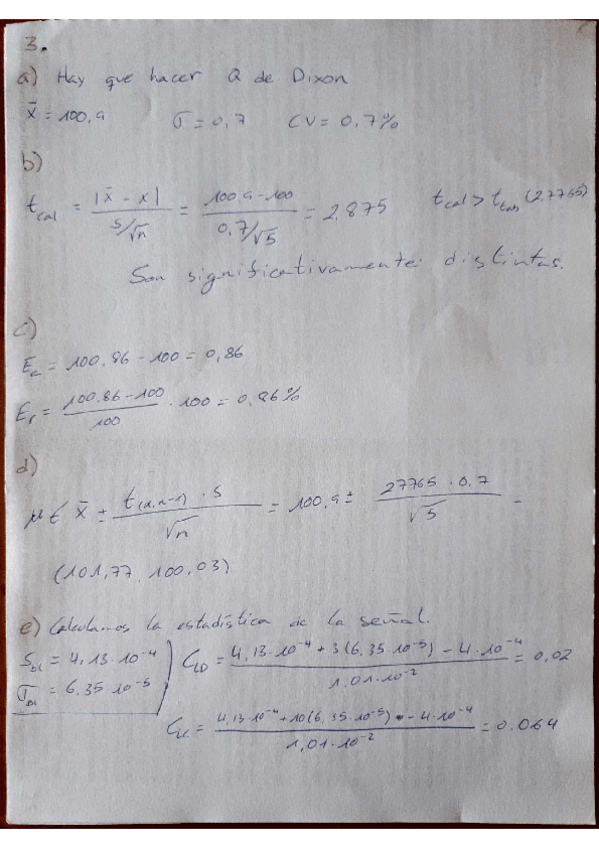 3.
a) Hay que hacer Q de Dixon
x̄ = 100,9 σ = 0,7 CV = 0,7%
b)
t_cal = |x̄ - x| / (s/√n) = (100,9 - 100) / (0,7/√5) = 2,875 t_cal > t_tab (2,7765)
Son significativamente distintas.
c)
E_a = 100,86 - 100 = 0,86
E_r = (100,86 - 100) / 100 · 100 = 0,86%
d)
μ ∈ x̄ ± (t(α,n-1) · s) / √n = 100,9 ± (27765 · 0,7) / √5 =
(101,77 , 100,03)
e) Calculamos la estadística de la señal.
S_bl = 4,13·10⁻⁴ C_LD = (4,13·10⁻⁴ + 3(6,35·10⁻⁵) - 4·10⁻⁴) / (1,01·10⁻²) = 0,02
σ_bl = 6,35·10⁻⁵
C_LC = (4,13·10⁻⁴ + 10(6,35·10⁻⁵) - 4·10⁻⁴) / (1,01·10⁻²) = 0.064